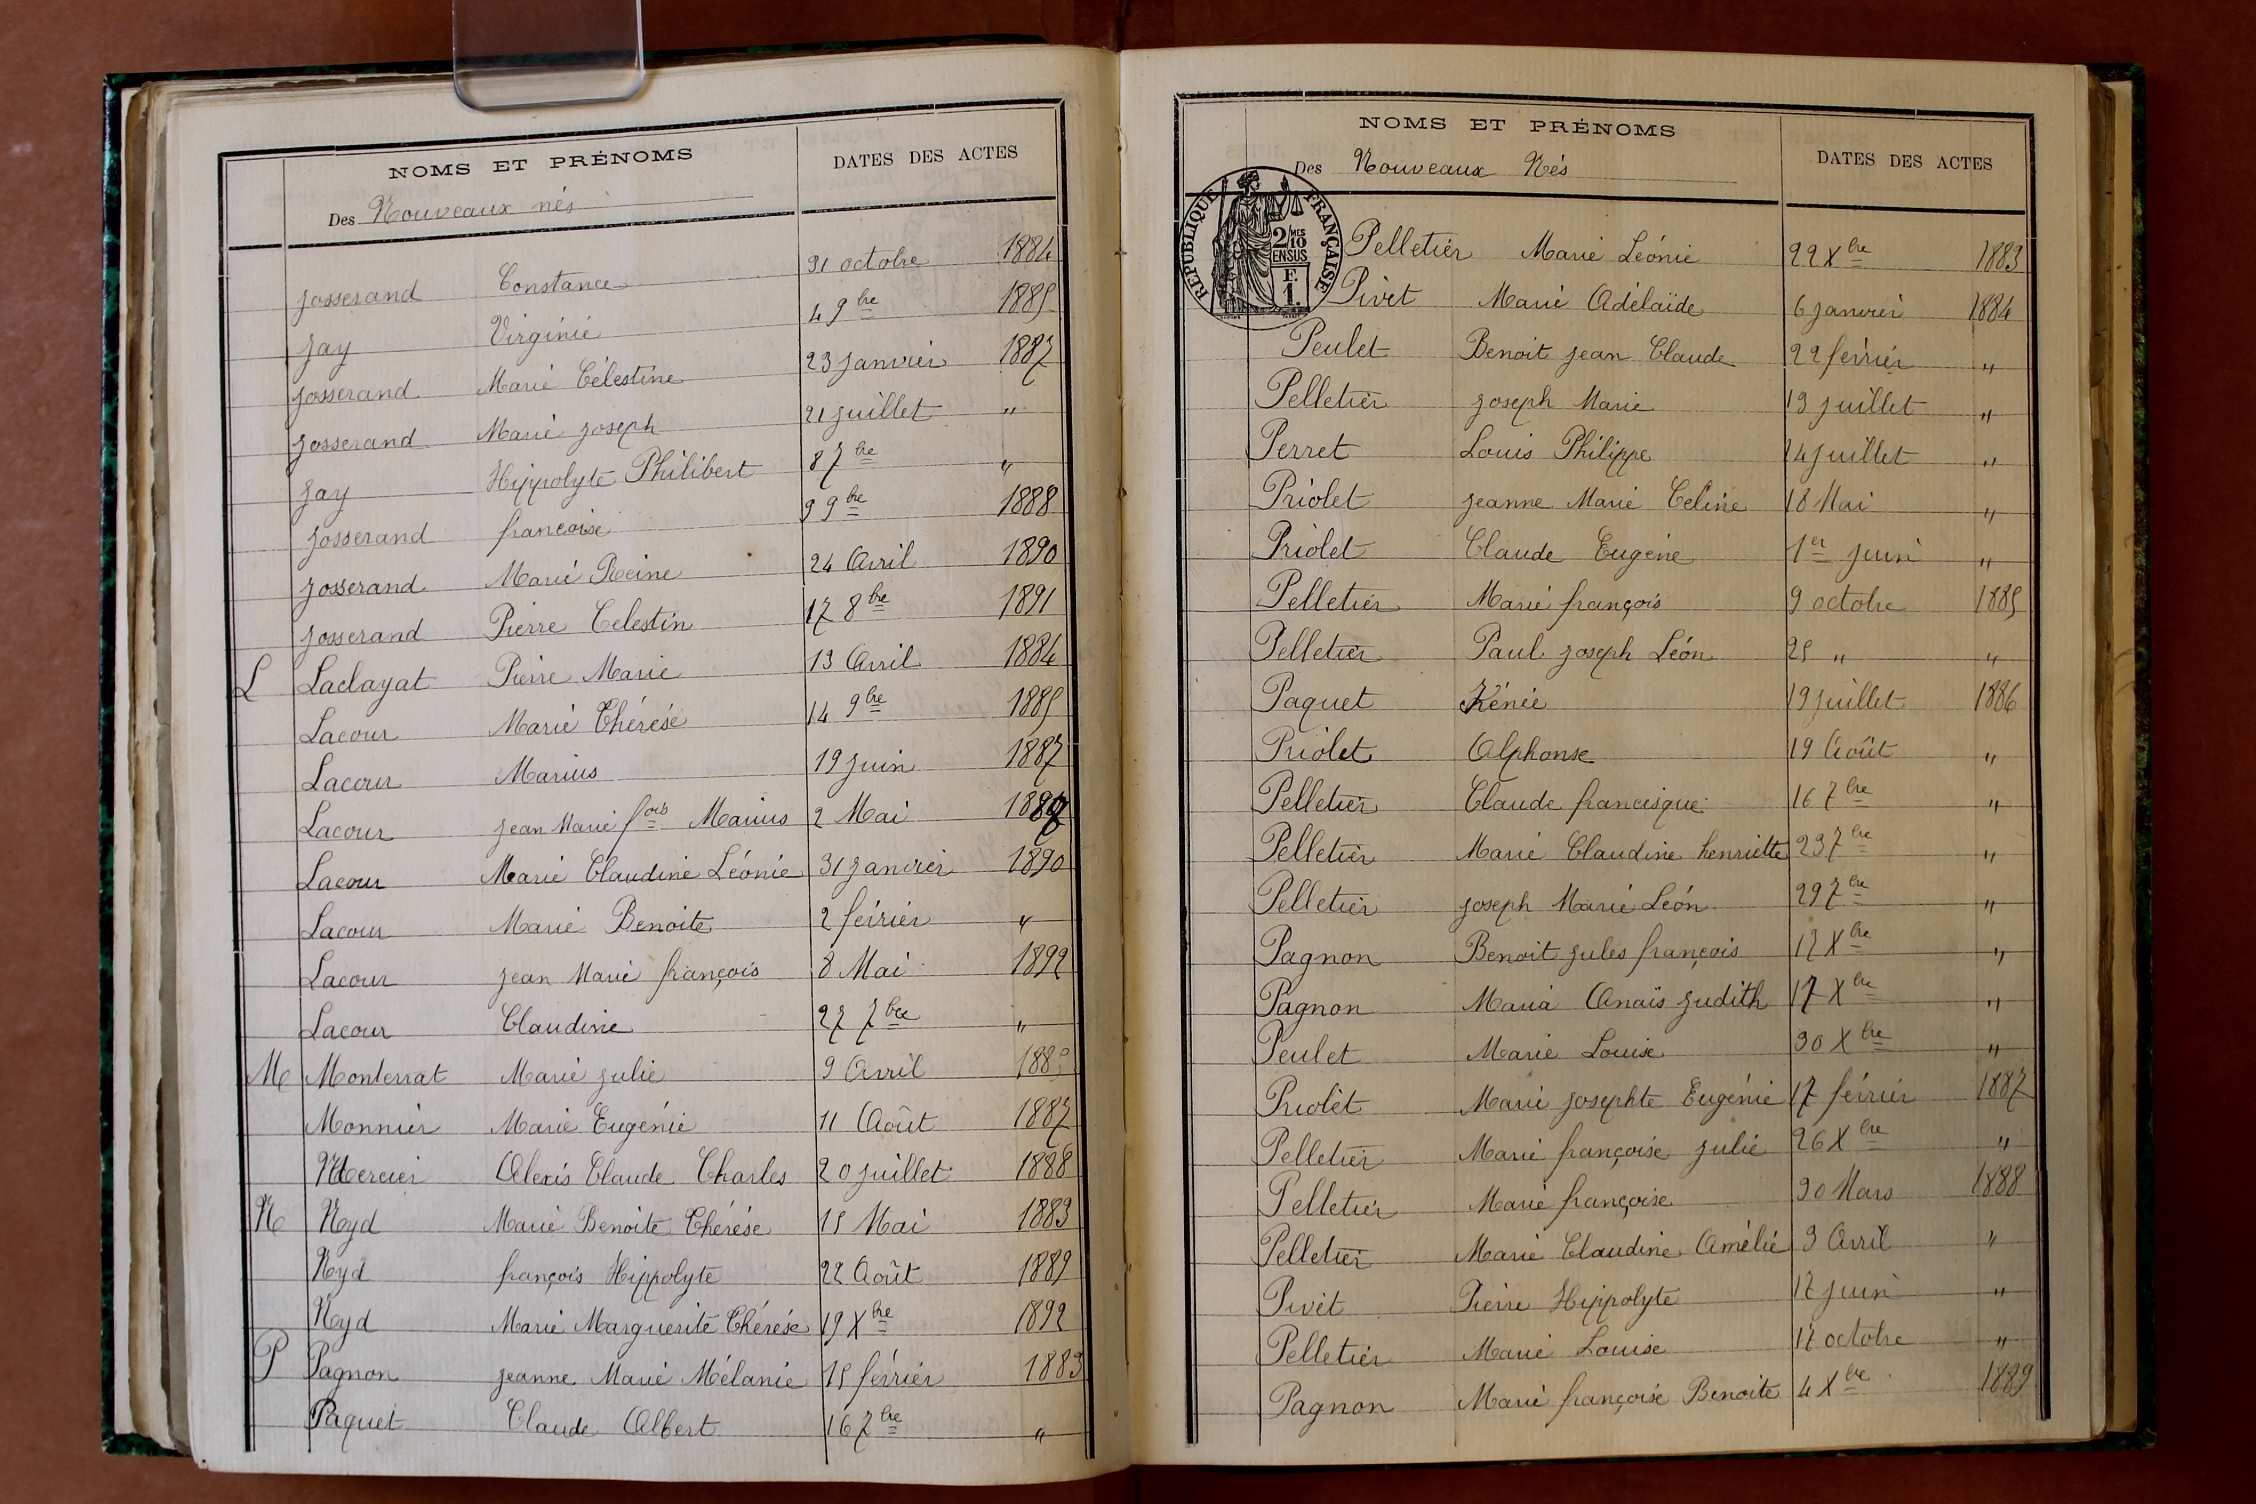 NOMS ET PRÉNOMS
DATES DES ACTES
Des Nouveaux nés
Josserand Constance 31 octobre 1884
Jay Virginie 4 9bre 1885
Josserand Marie Célestine 23 janvier 1887
Josserand Marie Joseph 21 juillet "
Jay Hippolyte Philibert 8 7bre "
Josserand françoise 9 9bre 1888
Josserand Marie Reine 24 Avril 1890
Josserand Pierre Celestin 17 8bre 1891
L Laclayat Pierre Marie 13 Avril 1884
Lacour Marie Thérésé 14 9bre 1885
Lacour Marius 19 juin 1887
Lacour Jean Marie fois Marius 2 Mai
Lacour Marie Claudine Léonie 31 janvier 1890
Lacour Marie Benoite 2 février "
Lacour Jean Marie françois 8 Mai 1892
Lacour Claudine 27 7bre "
M Monterrat Marie Julie 9 Avril
Monnier Marie Eugénie 11 Août 1887
Mercier Alexis Claude Charles 20 juillet 1888
N Nyd Marie Benoite Thérése 15 Mai 1883
Nyd françois Hippolyte 22 Août 1889
Nyd Marie Marguerite Thérése 19 Xbre 1892
P Pagnon Jeanne Marie Mélanie 15 février 1883
Paquet Claude Albert 16 7bre "
NOMS ET PRÉNOMS
DATES DES ACTES
Des Nouveaux Nés
RÉPUBLIQUE FRANÇAISE
2/10MES
EN SUS
F.
1.
Pelletier Marie Léonie 22 Xbre 1883
Pivet Marie Adélaïde 6 janvier 1884
Peulet Benoit Jean Claude 22 février "
Pelletier Joseph Marie 13 juillet "
Perret Louis Philippe 14 juillet "
Priolet Jeanne Marie Celine 18 Mai "
Priolet Claude Eugène 1er juin "
Pelletier Marie françois 9 octobre 1885
Pelletier Paul Joseph Léon 25 " "
Paquet Rénée 19 juillet 1886
Priolet Alphonse 19 Août "
Pelletier Claude francisque 16 7bre "
Pelletier Marie Claudine henriette 23 7bre "
Pelletier Joseph Marie Léon 29 7bre "
Pagnon Benoit Jules françois 17 Xbre "
Pagnon Maria Anaïs Judith 17 Xbre "
Peulet Marie Louise 30 Xbre "
Priolet Marie Josephte Eugénie 17 février 1887
Pelletier Marie françoise Julie 26 Xbre "
Pelletier Marie françoise 30 Mars 1888
Pelletier Marie Claudine Amélie 3 Avril "
Pivet Pierre Hippolyte 17 juin "
Pelletier Marie Louise 17 octobre "
Pagnon Marie françoise Benoite 4 Xbre 1889